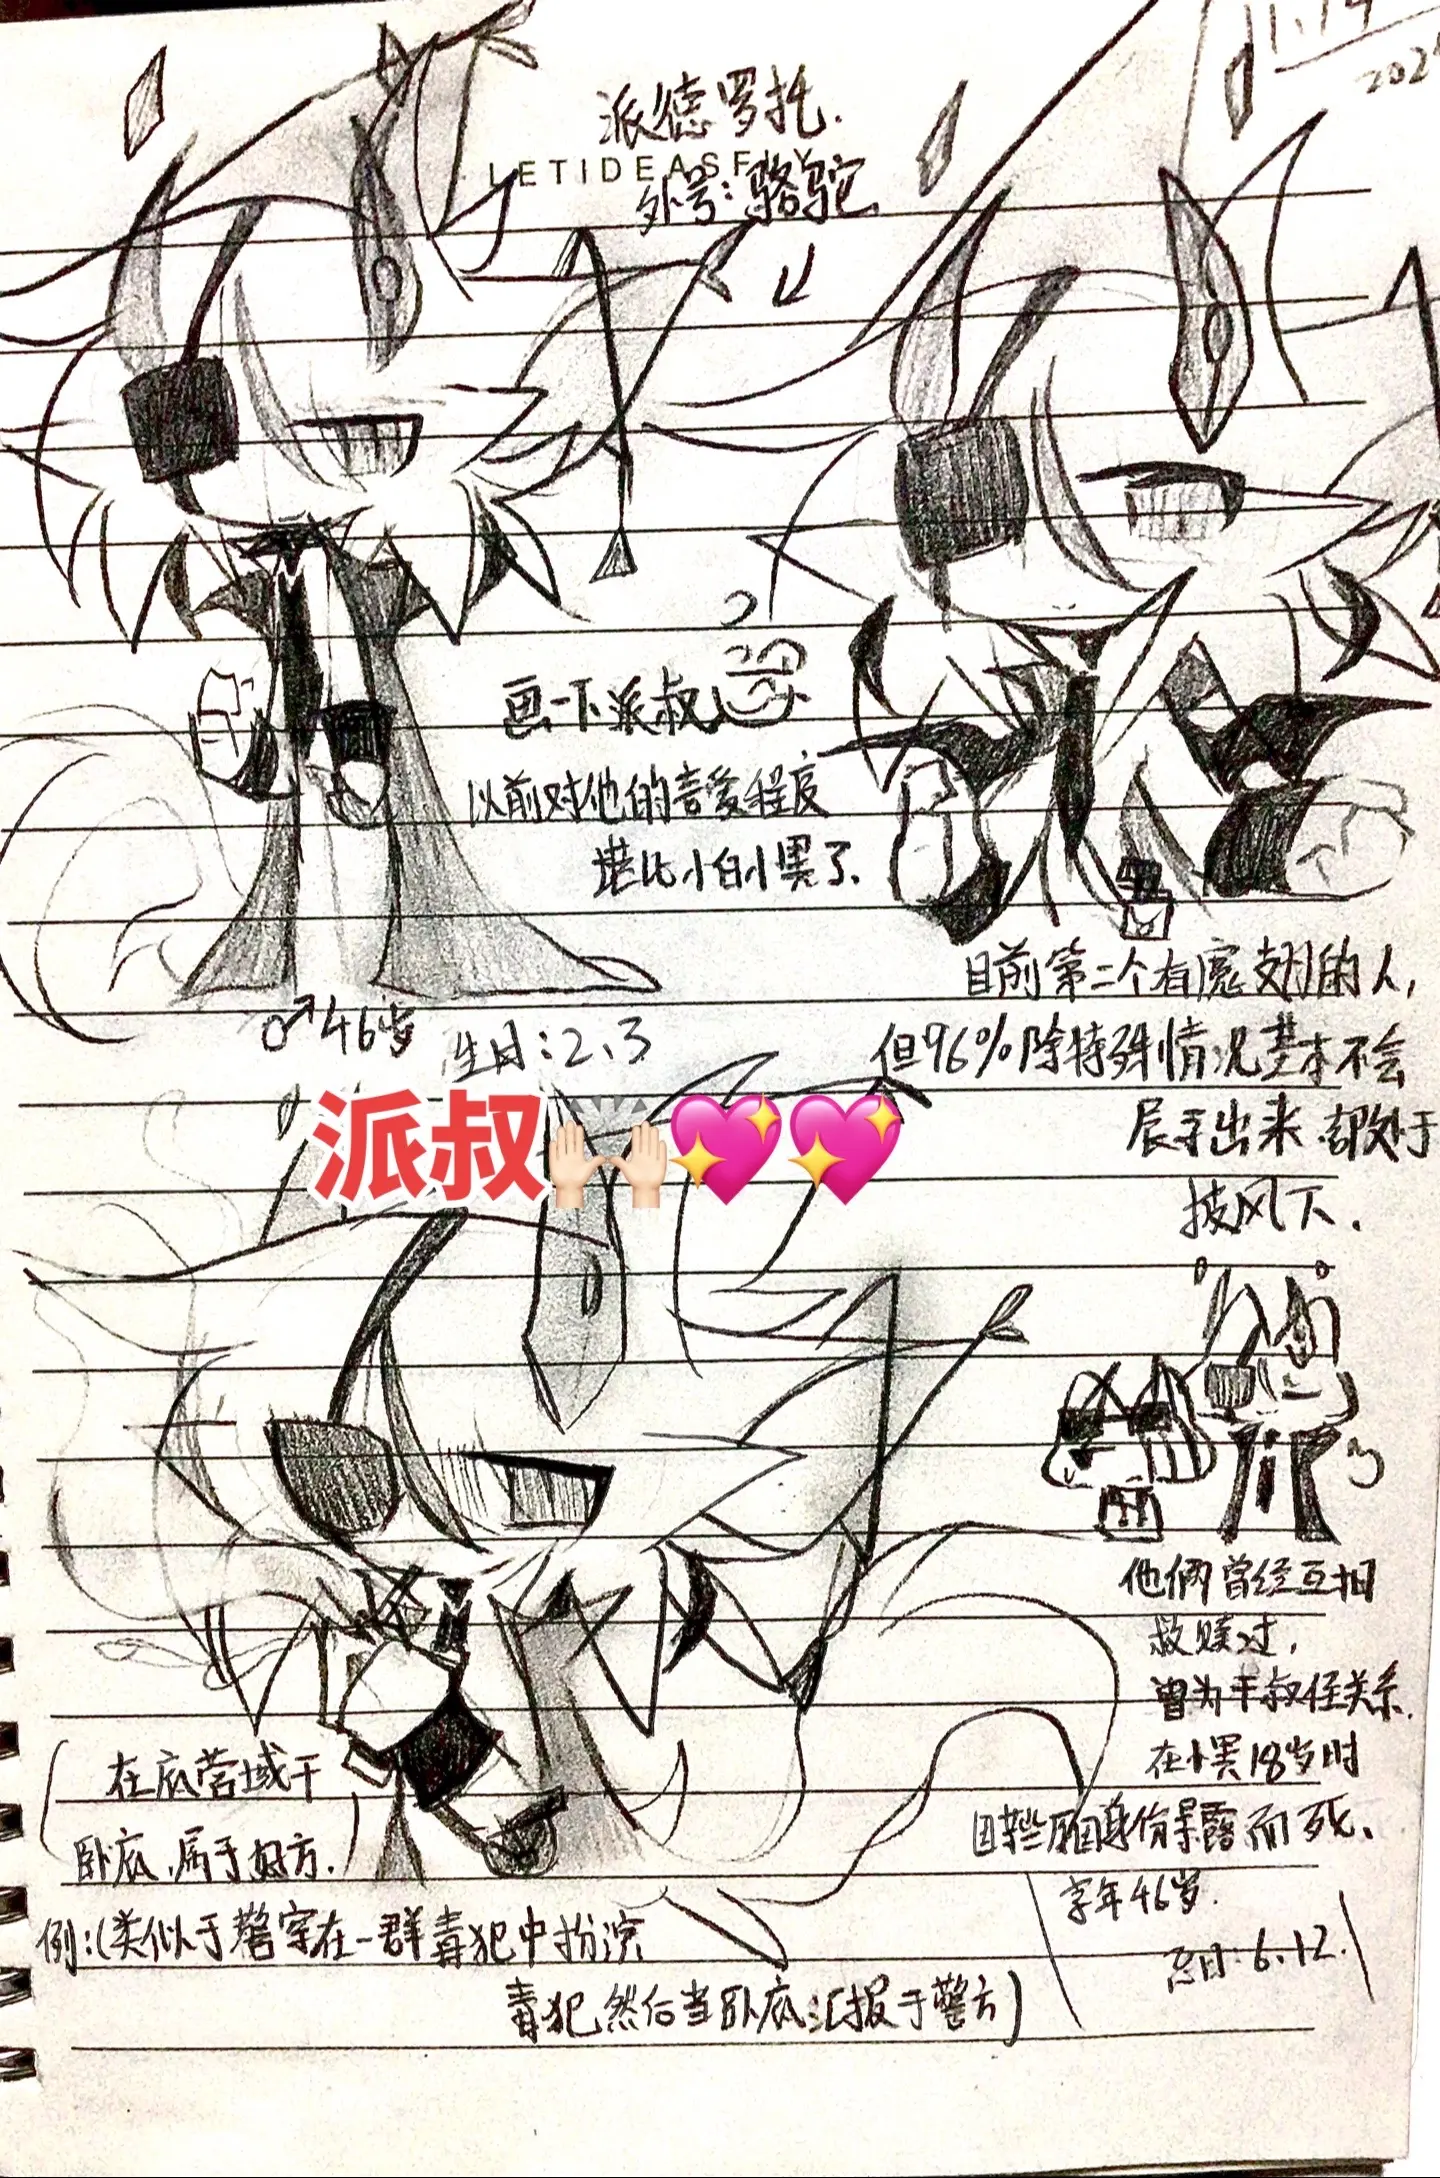 11.14
202
派德罗托.
LETIDEASFLY
外号：骆驼
画一下派叔
以前对他的喜爱程度
堪比小白小黑了.
目前第二个有魔翅的人,
但96%除特殊情况基本不会
展于出来.都处于
披风下.
♂46岁 生日：2、3
派叔🙌🏻💖💖
他俩曾经互相
救赎过,
曾为干叔侄关系.
在小黑18岁时
因身份暴露而死.
享年46岁.
忌日:6.12.
在底营域干
卧底,属于好方.
例:(类似于警察在一群毒犯中扮演
毒犯然后当卧底汇报于警方)